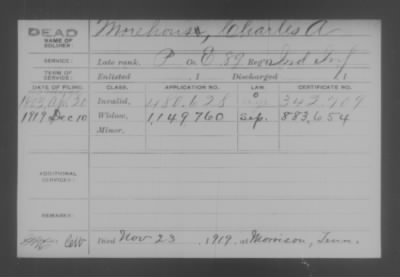 DEAD Morehouse, Charles A
NAME OF SOLDIER:
SERVICE: Late rank, P Co. E. 89 Reg't Ind Inf
TERM OF SERVICE: Enlisted , 1 Discharged , 1
DATE OF FILING. CLASS. APPLICATION NO. LAW. CERTIFICATE NO.
20 Invalid, 480,628 342,709
1919 Dec 10 Widow, 1,149,760 Sep. 883,654
Minor,
ADDITIONAL SERVICES:
REMARKS:
Died Nov 23 , 1919, at Morrison, Tenn.